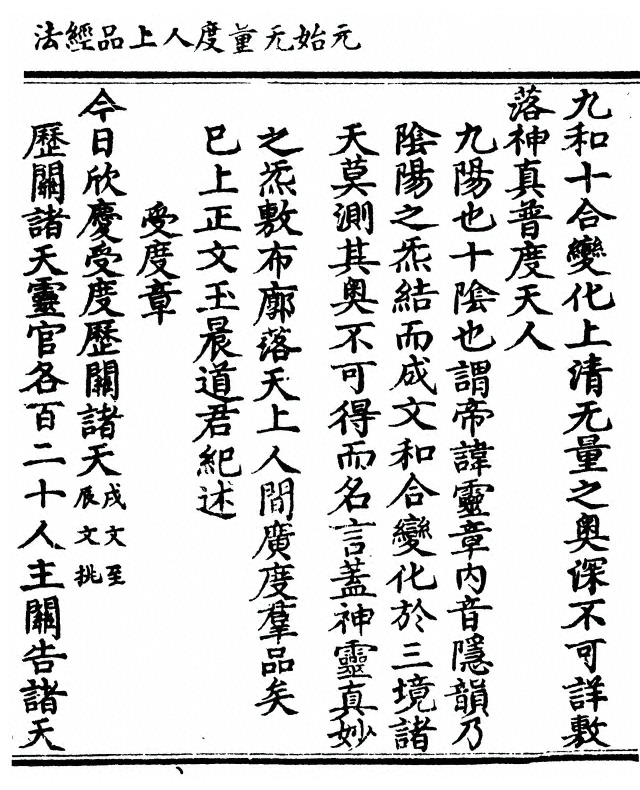 元始无量度人上品經法
九和十合變化上清无量之奥深不可詳敷
落神真普度天人
九陽也十陰也謂帝諱靈章内音隱韻乃
陰陽之炁結而成文和合變化於三境諸
天莫測其奥不可得而名言蓋神靈真妙
之炁敷布廓落天上人間廣度羣品矣
巳上正文玉晨道君紀述
受度章
今日欣慶受度歷關諸天戌文至辰文挑
歷關諸天靈官各百二十人主關告諸天